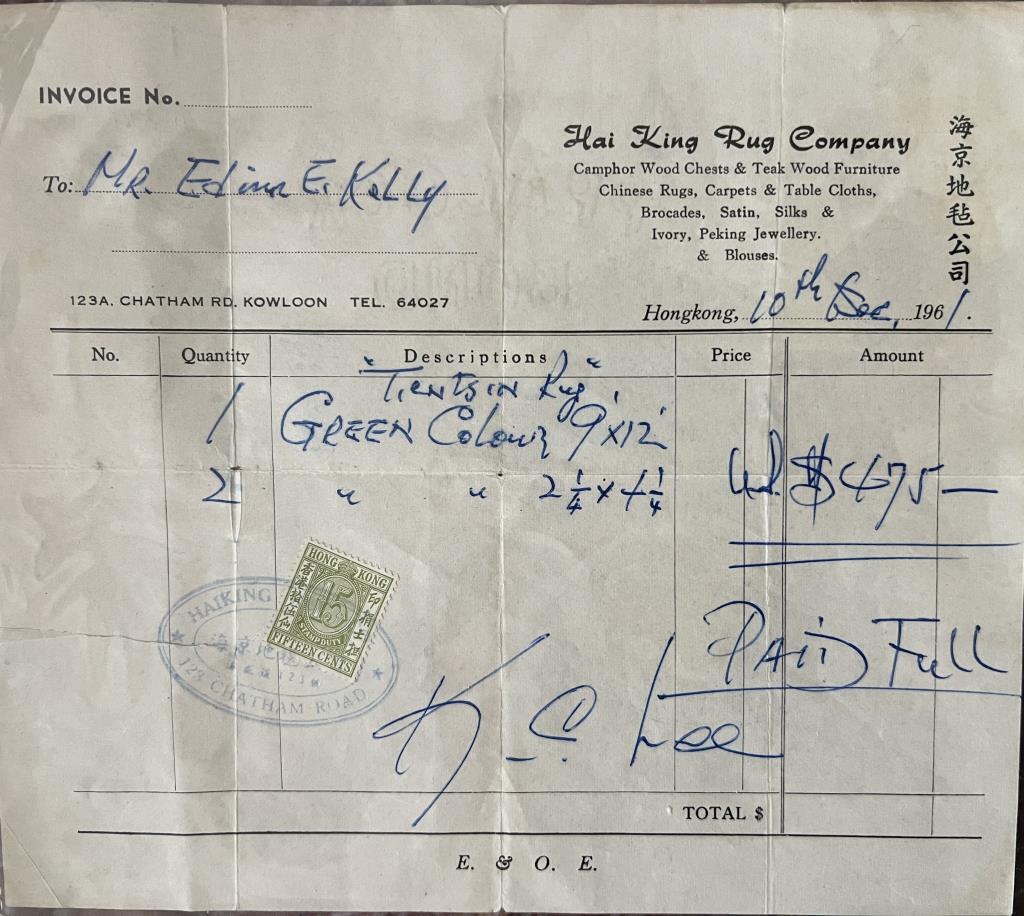 INVOICE No.
Hai King Rug Company
Camphor Wood Chests & Teak Wood Furniture
Chinese Rugs, Carpets & Table Cloths,
Brocades, Satin, Silks &
Ivory, Peking Jewellery.
& Blouses.
海京地毡公司
To: MR. E. Kelly
123A, CHATHAM RD. KOWLOON TEL. 64027
Hongkong, 10th Dec, 1961.
No. Quantity Descriptions Price Amount
"Tientsin Rug"
1 GREEN Colour 9'x12'
2 " " 2 1/4 x 4 1/4
U.S. $475—
HONG KONG
香港拾伍仙
印捐士担
15
STAMP DUTY
FIFTEEN CENTS
HAIKING
海京地毡
123 CHATHAM ROAD
PAID Full
K. C. Lee
TOTAL $
E. & O. E.